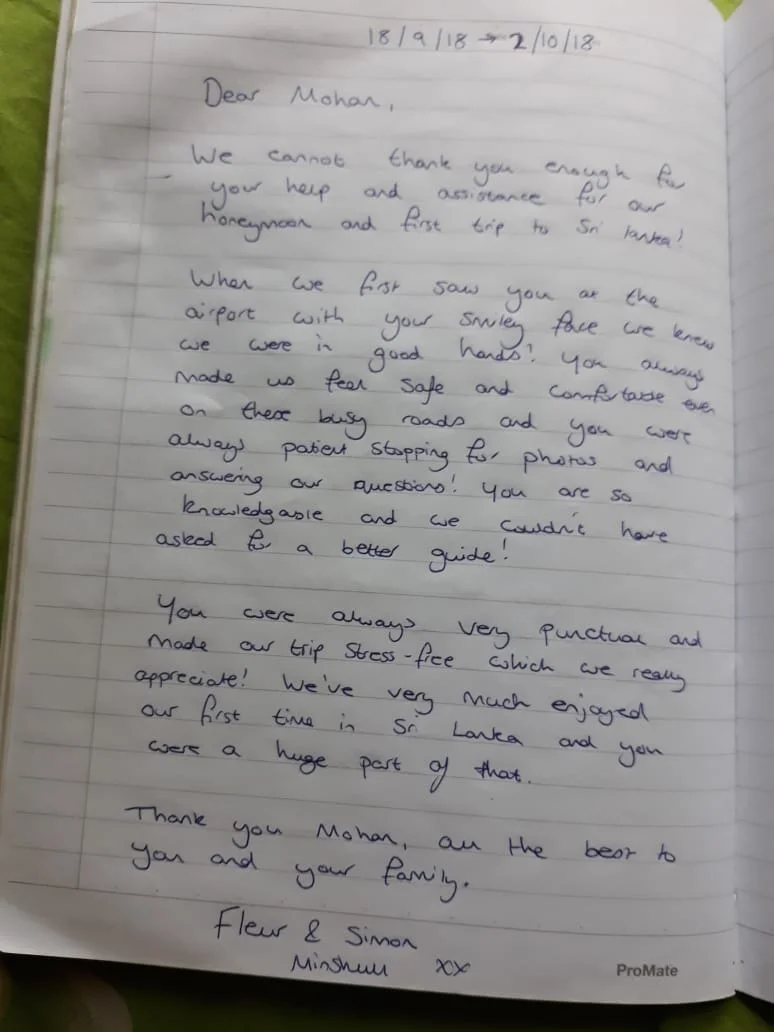 18/9/18 → 2/10/18
Dear Mohan,
We cannot thank you enough for
your help and assistance for our
honeymoon and first trip to Sri lanka!
When we first saw you at the
airport with your smiley face we knew
we were in good hands! You always
made us feel safe and comfortable even
on these busy roads and you were
always patient stopping for photos and
answering our questions! You are so
knowledgable and we couldn't have
asked for a better guide!
You were always very punctual and
made our trip stress-free which we really
appreciate! We've very much enjoyed
our first time in Sri Lanka and you
were a huge part of that.
Thank you Mohan, all the best to
you and your family.
Fleur & Simon
Minshull xx
ProMate